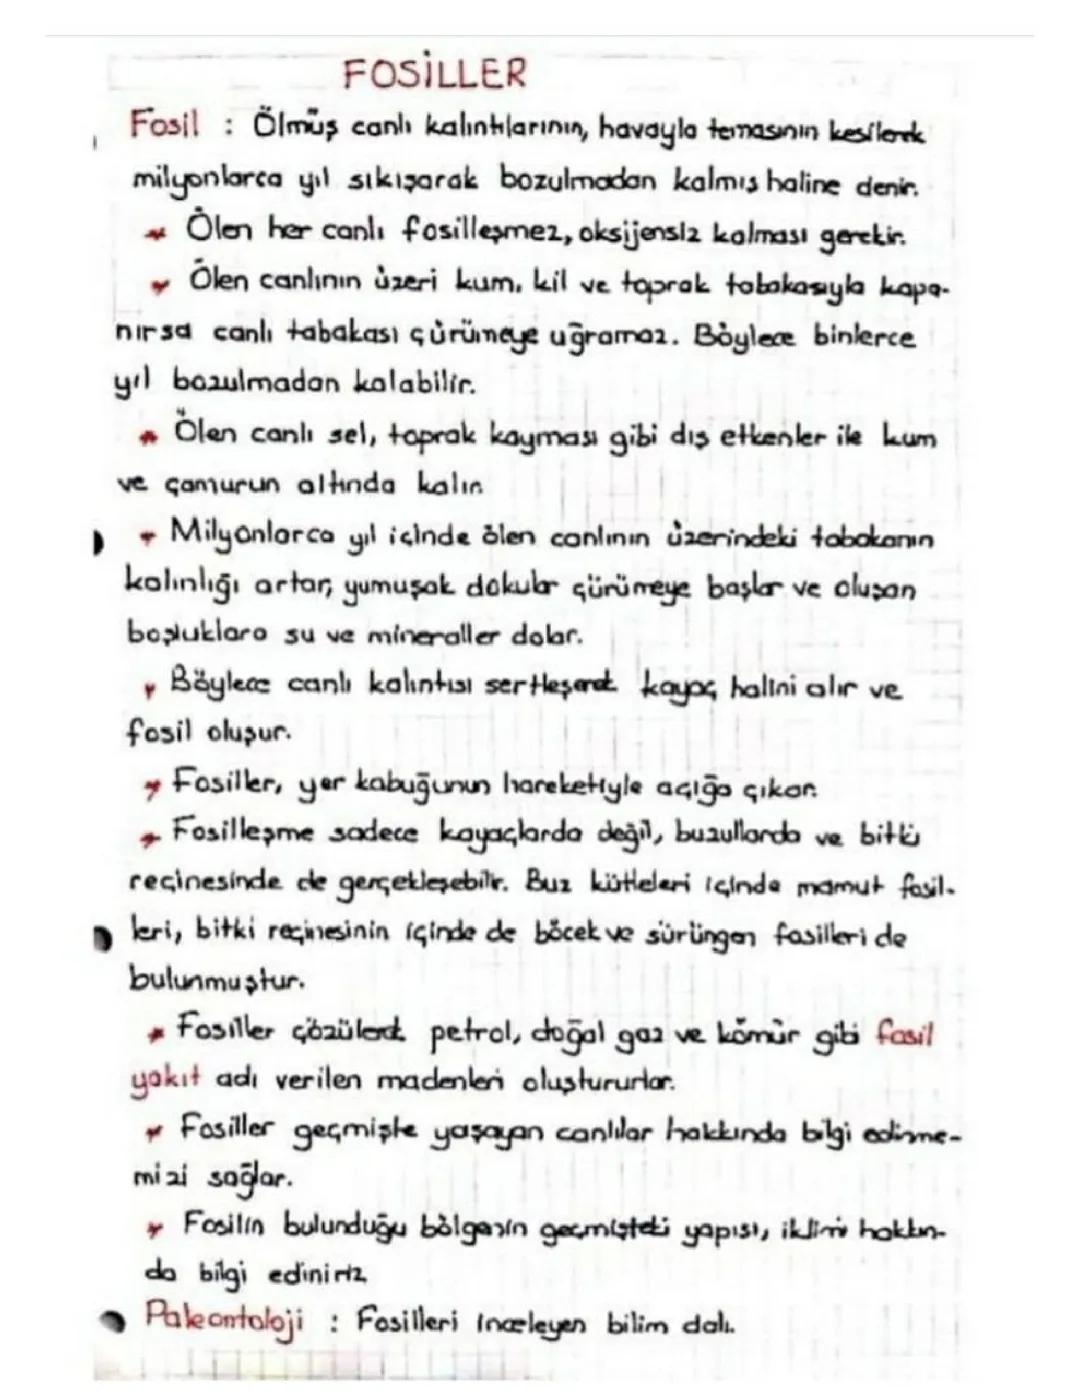 FOSİLLER
Fosil : Ölmüş canlı kalıntılarının, havayla temasının kesilerek
milyonlarca yıl sıkışarak bozulmadan kalmış haline denir.
* Ölen her canlı fosilleşmez, oksijensiz kalması gerekir.
* Ölen canlının üzeri kum, kil ve toprak tabakasıyla kapa-
nırsa canlı tabakası çürümeye uğramaz. Böylece binlerce
yıl bozulmadan kalabilir.
* Ölen canlı sel, toprak kayması gibi dış etkenler ile kum
ve çamurun altında kalır.
* Milyonlarca yıl içinde ölen canlının üzerindeki tabakanın
kalınlığı artar, yumuşak dokular çürümeye başlar ve oluşan
boşluklara su ve mineraller dolar.
* Böylece canlı kalıntısı sertleşerek kayaç halini alır ve
fosil oluşur.
* Fosiller, yer kabuğunun hareketiyle açığa çıkar.
* Fosilleşme sadece kayaçlarda değil, buzullarda ve bitki
reçinesinde de gerçekleşebilir. Buz kütleleri içinde mamut fosil-
leri, bitki reçinesinin içinde de böcek ve sürüngen fosilleri de
bulunmuştur.
* Fosiller çözülerek petrol, doğal gaz ve kömür gibi fosil
yakıt adı verilen madenleri oluştururlar.
* Fosiller geçmişte yaşayan canlılar hakkında bilgi edinme-
mizi sağlar.
* Fosilin bulunduğu bölgenin geçmişteki yapısı, iklimi hakkın-
da bilgi ediniriz
Paleontoloji : Fosilleri inceleyen bilim dalı.